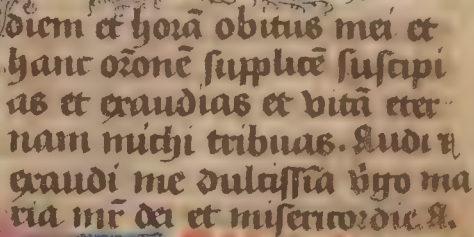 diem et horā obitus mei et
hanc or̄onē supplicē suscipi
as et exaudias et vitā eter
nam michi tribuas. Audi ⁊
exaudi me dulcissīa v̓go ma
ria mr̄ dei et misericordie. A.